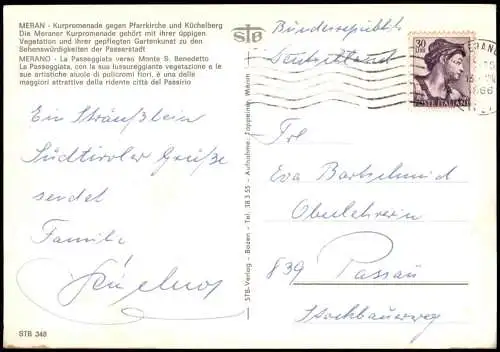 MERAN - Kurpromenade gegen Pfarrkirche und Küchelberg
Die Meraner Kurpromenade gehört mit ihrer üppigen
Vegetation und ihrer gepflegten Gartenkunst zu den
Sehenswürdigkeiten der Passerstadt
MERANO - La Passeggiata verso Monte S. Benedetto
La Passeggiata, con la sua lussureggiante vegetazione e le
sue artistiche aiuole di policromi fiori, è una delle
maggiori attrattive della ridente città del Passirio
Ein Sträußlein
Südtiroler Grüße
sendet
Familie
STB 348
STB
STB-Verlag - Bozen - Tel. 38 3 55 - Aufnahme: Tappeiner, Meran
Bundesrepublik
Deutschland
30
POSTE ITALIANE
Frl
Eva Bartschmid
Oberlehrerin
839 Passau